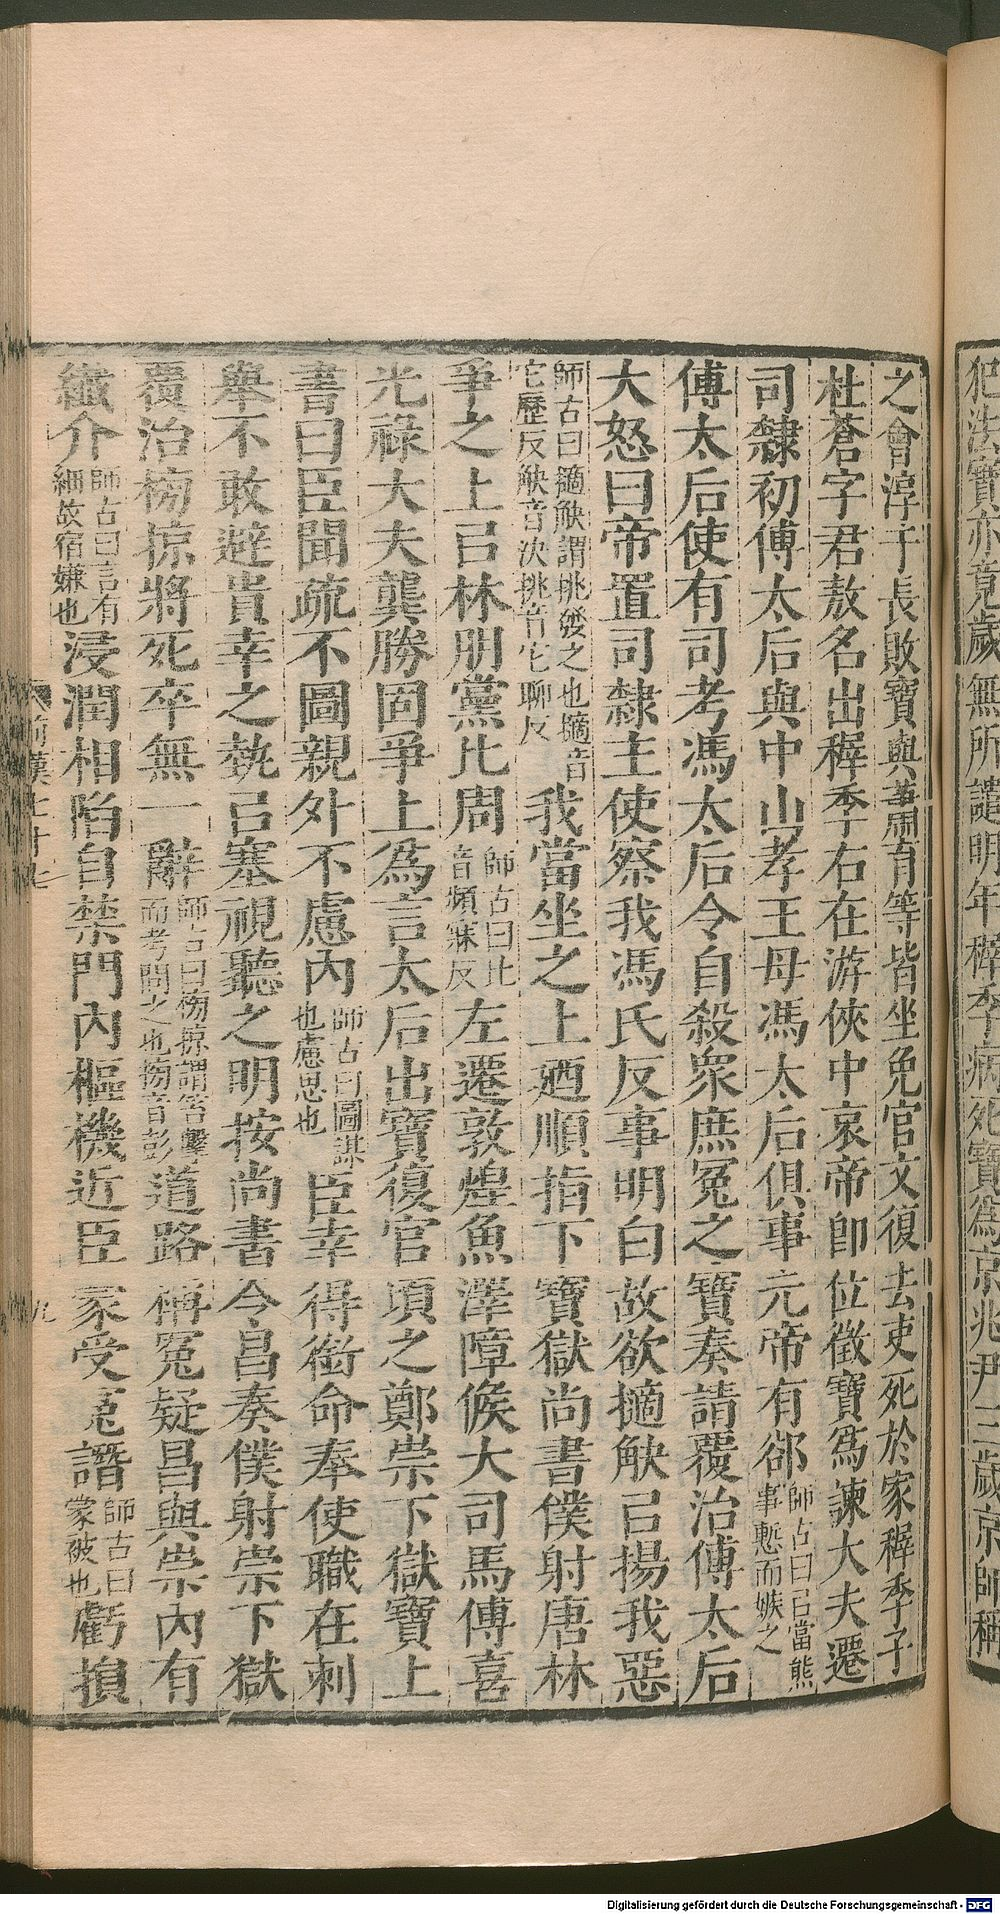 犯法寶亦竟歲無所譴明年穉季病死寶爲京兆尹三歲京師稱
之會淳于長敗寶與蕭育等皆坐免官文復去吏死於家穉季子
杜蒼字君敖名出穉季右在游俠中哀帝即位徵寶爲諫大夫遷
司隸初傅太后與中山孝王母馮太后俱事元帝有郤師古曰㠯當熊事慙而嫉之
傅太后使有司考馮太后令自殺衆庶冤之寶奏請覆治傅太后
大怒曰帝置司隸主使察我馮氏反事明白故欲擿觖㠯揚我惡
師古曰擿觖謂挑發之也擿音它歷反觖音決挑音它聊反我當坐之上迺順指下寶獄尚書僕射唐林
爭之上㠯林朋黨比周師古曰比音頻寐反左遷敦煌魚澤障候大司馬傅喜
光祿大夫龔勝固爭上爲言太后出寶復官項之鄭崇下獄寶上
書曰臣聞疏不圖親外不慮內師古曰圖謀也慮思也臣幸得銜命奉使職在刺
舉不敢避貴幸之埶㠯塞視聽之明按尚書令昌奏僕射崇下獄
覆治榜掠將死卒無一辭師古曰榜掠謂笞擊而考問之也榜音彭道路稱冤疑昌與崇內有
纖介師古曰言有細故宿嫌也浸潤相陷自禁門內樞機近臣冡受冤譖師古曰蒙被也虧損
前漢七十七
九
Digitalisierung gefördert durch die Deutsche Forschungsgemeinschaft - DFG